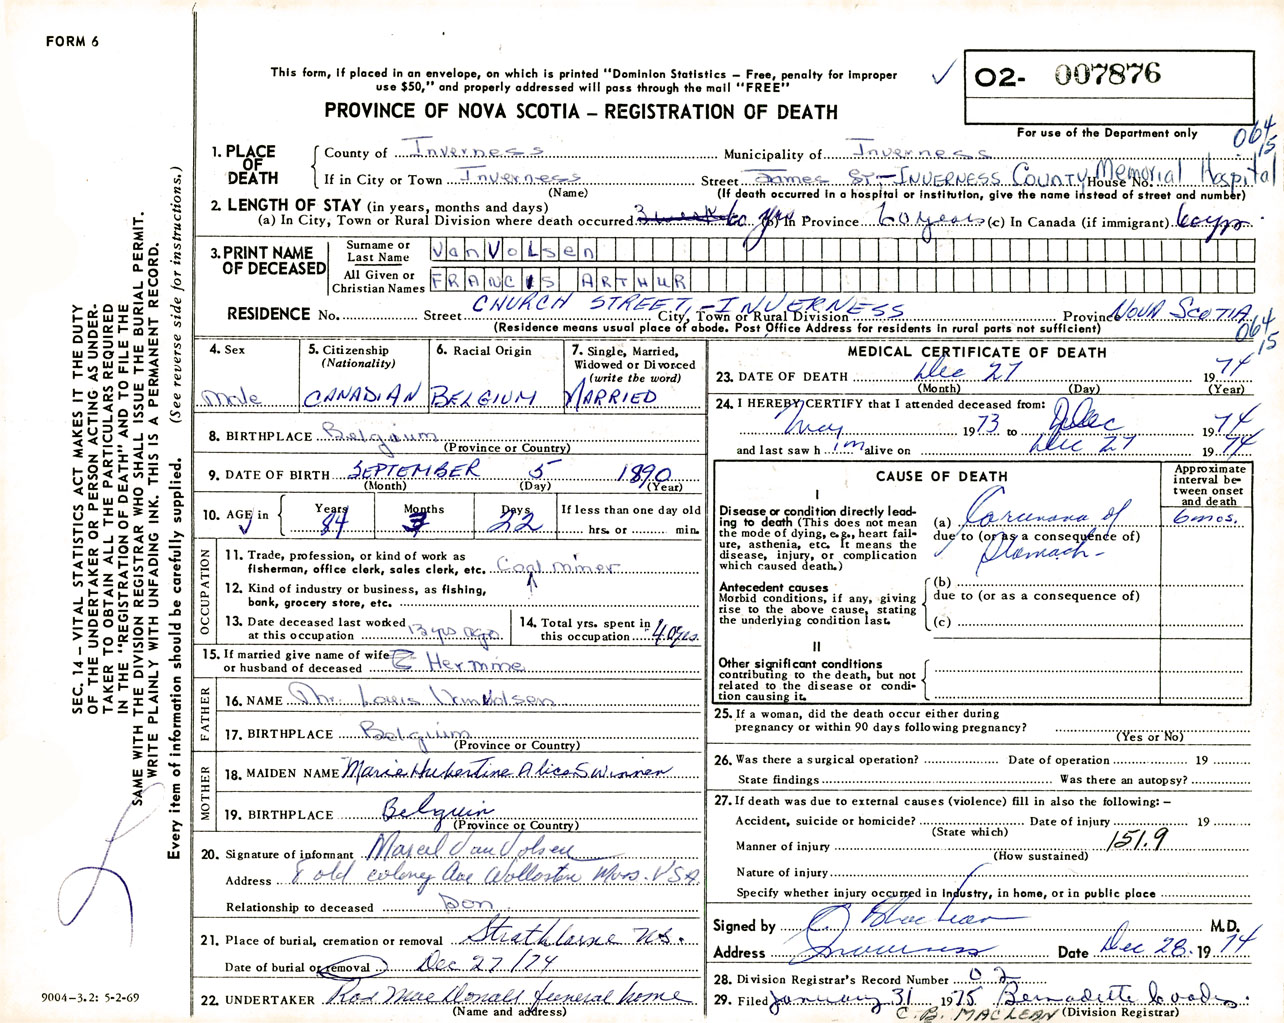 FORM 6
This form, if placed in an envelope, on which is printed "Dominion Statistics – Free, penalty for improper
use $50," and properly addressed will pass through the mail "FREE"
PROVINCE OF NOVA SCOTIA – REGISTRATION OF DEATH
✓ 02- 007876
For use of the Department only
064
15
1. PLACE OF DEATH
County of Inverness Municipality of Inverness
If in City or Town Inverness Street James St.-INVERNESS COUNTY House No. Memorial Hospital
(Name) (If death occurred in a hospital or institution, give the name instead of street and number)
2. LENGTH OF STAY (in years, months and days)
(a) In City, Town or Rural Division where death occurred 60 yrs (b) In Province 60 years (c) In Canada (if immigrant) 60 yrs.
3. PRINT NAME OF DECEASED
Surname or Last Name VanVolsen
All Given or Christian Names FRANCIS ARTHUR
RESIDENCE No. Street CHURCH STREET,-INVERNESS City, Town or Rural Division Province NOVA SCOTIA
(Residence means usual place of abode. Post Office Address for residents in rural parts not sufficient)
064
15
4. Sex
Male
5. Citizenship
(Nationality)
CANADIAN
6. Racial Origin
BELGIUM
7. Single, Married,
Widowed or Divorced
(write the word)
MARRIED
8. BIRTHPLACE Belgium
(Province or Country)
9. DATE OF BIRTH SEPTEMBER 5 1890
(Month) (Day) (Year)
10. AGE in Years 84 Months 3 Days 22 If less than one day old
hrs. or min.
OCCUPATION
11. Trade, profession, or kind of work as
fisherman, office clerk, sales clerk, etc. Coal miner
12. Kind of industry or business, as fishing,
bank, grocery store, etc.
13. Date deceased last worked
at this occupation 13 yrs ago
14. Total yrs. spent in
this occupation 40 yrs.
15. If married give name of wife
or husband of deceased Hermine
FATHER
16. NAME Mr. Louis VanVolsen
17. BIRTHPLACE Belgium
(Province or Country)
MOTHER
18. MAIDEN NAME Marie Hubertine Alice Swinnen
19. BIRTHPLACE Belguim
(Province or Country)
20. Signature of informant Marcel Van Volsen
Address 8 old colony Ave Wollaston Mass. USA.
Relationship to deceased Son
21. Place of burial, cremation or removal Strathlorne N.S.
Date of burial or removal Dec 27/74
22. UNDERTAKER Rod MacDonald funeral home
(Name and address)
MEDICAL CERTIFICATE OF DEATH
23. DATE OF DEATH Dec 27 1974
(Month) (Day) (Year)
24. I HEREBY CERTIFY that I attended deceased from:
May 1973 to Dec 1974
and last saw h im alive on Dec 27 1974
CAUSE OF DEATH
Approximate
interval be-
tween onset
and death
I
Disease or condition directly lead-
ing to death (This does not mean
the mode of dying, e.g., heart fail-
ure, asthenia, etc. It means the
disease, injury, or complication
which caused death.)
(a) Carcinoma of 6 mos.
due to (or as a consequence of)
Stomach-
Antecedent causes
Morbid conditions, if any, giving
rise to the above cause, stating
the underlying condition last.
(b)
due to (or as a consequence of)
(c)
II
Other significant conditions
contributing to the death, but not
related to the disease or condi-
tion causing it.
25. If a woman, did the death occur either during
pregnancy or within 90 days following pregnancy?
(Yes or No)
26. Was there a surgical operation? Date of operation 19
State findings Was there an autopsy?
27. If death was due to external causes (violence) fill in also the following: –
Accident, suicide or homicide? Date of injury 19
(State which)
Manner of injury 151.9
(How sustained)
Nature of injury
Specify whether injury occurred in Industry, in home, or in public place
Signed by M.D.
Address Inverness Date Dec 28. 1974
28. Division Registrar's Record Number 02
29. Filed January 31 1975 Bernadette
C. B. MACLEAN (Division Registrar)
SEC. 14 – VITAL STATISTICS ACT MAKES IT THE DUTY
OF THE UNDERTAKER OR PERSON ACTING AS UNDER-
TAKER TO OBTAIN ALL THE PARTICULARS REQUIRED
IN THE "REGISTRATION OF DEATH" AND TO FILE THE
SAME WITH THE DIVISION REGISTRAR WHO SHALL ISSUE THE BURIAL PERMIT.
WRITE PLAINLY WITH UNFADING INK. THIS IS A PERMANENT RECORD.
Every item of information should be carefully supplied. (See reverse side for instructions.)
9004-3.2: 5-2-69